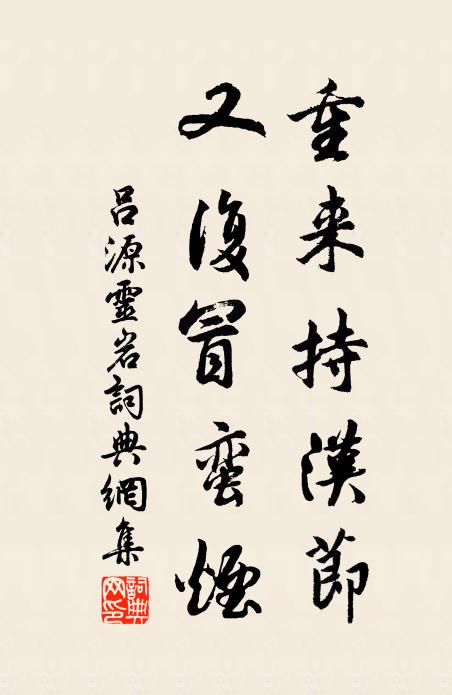 重来持漢節
又復冒蛮煙
吕源靈岩詞典網集
詞典网印